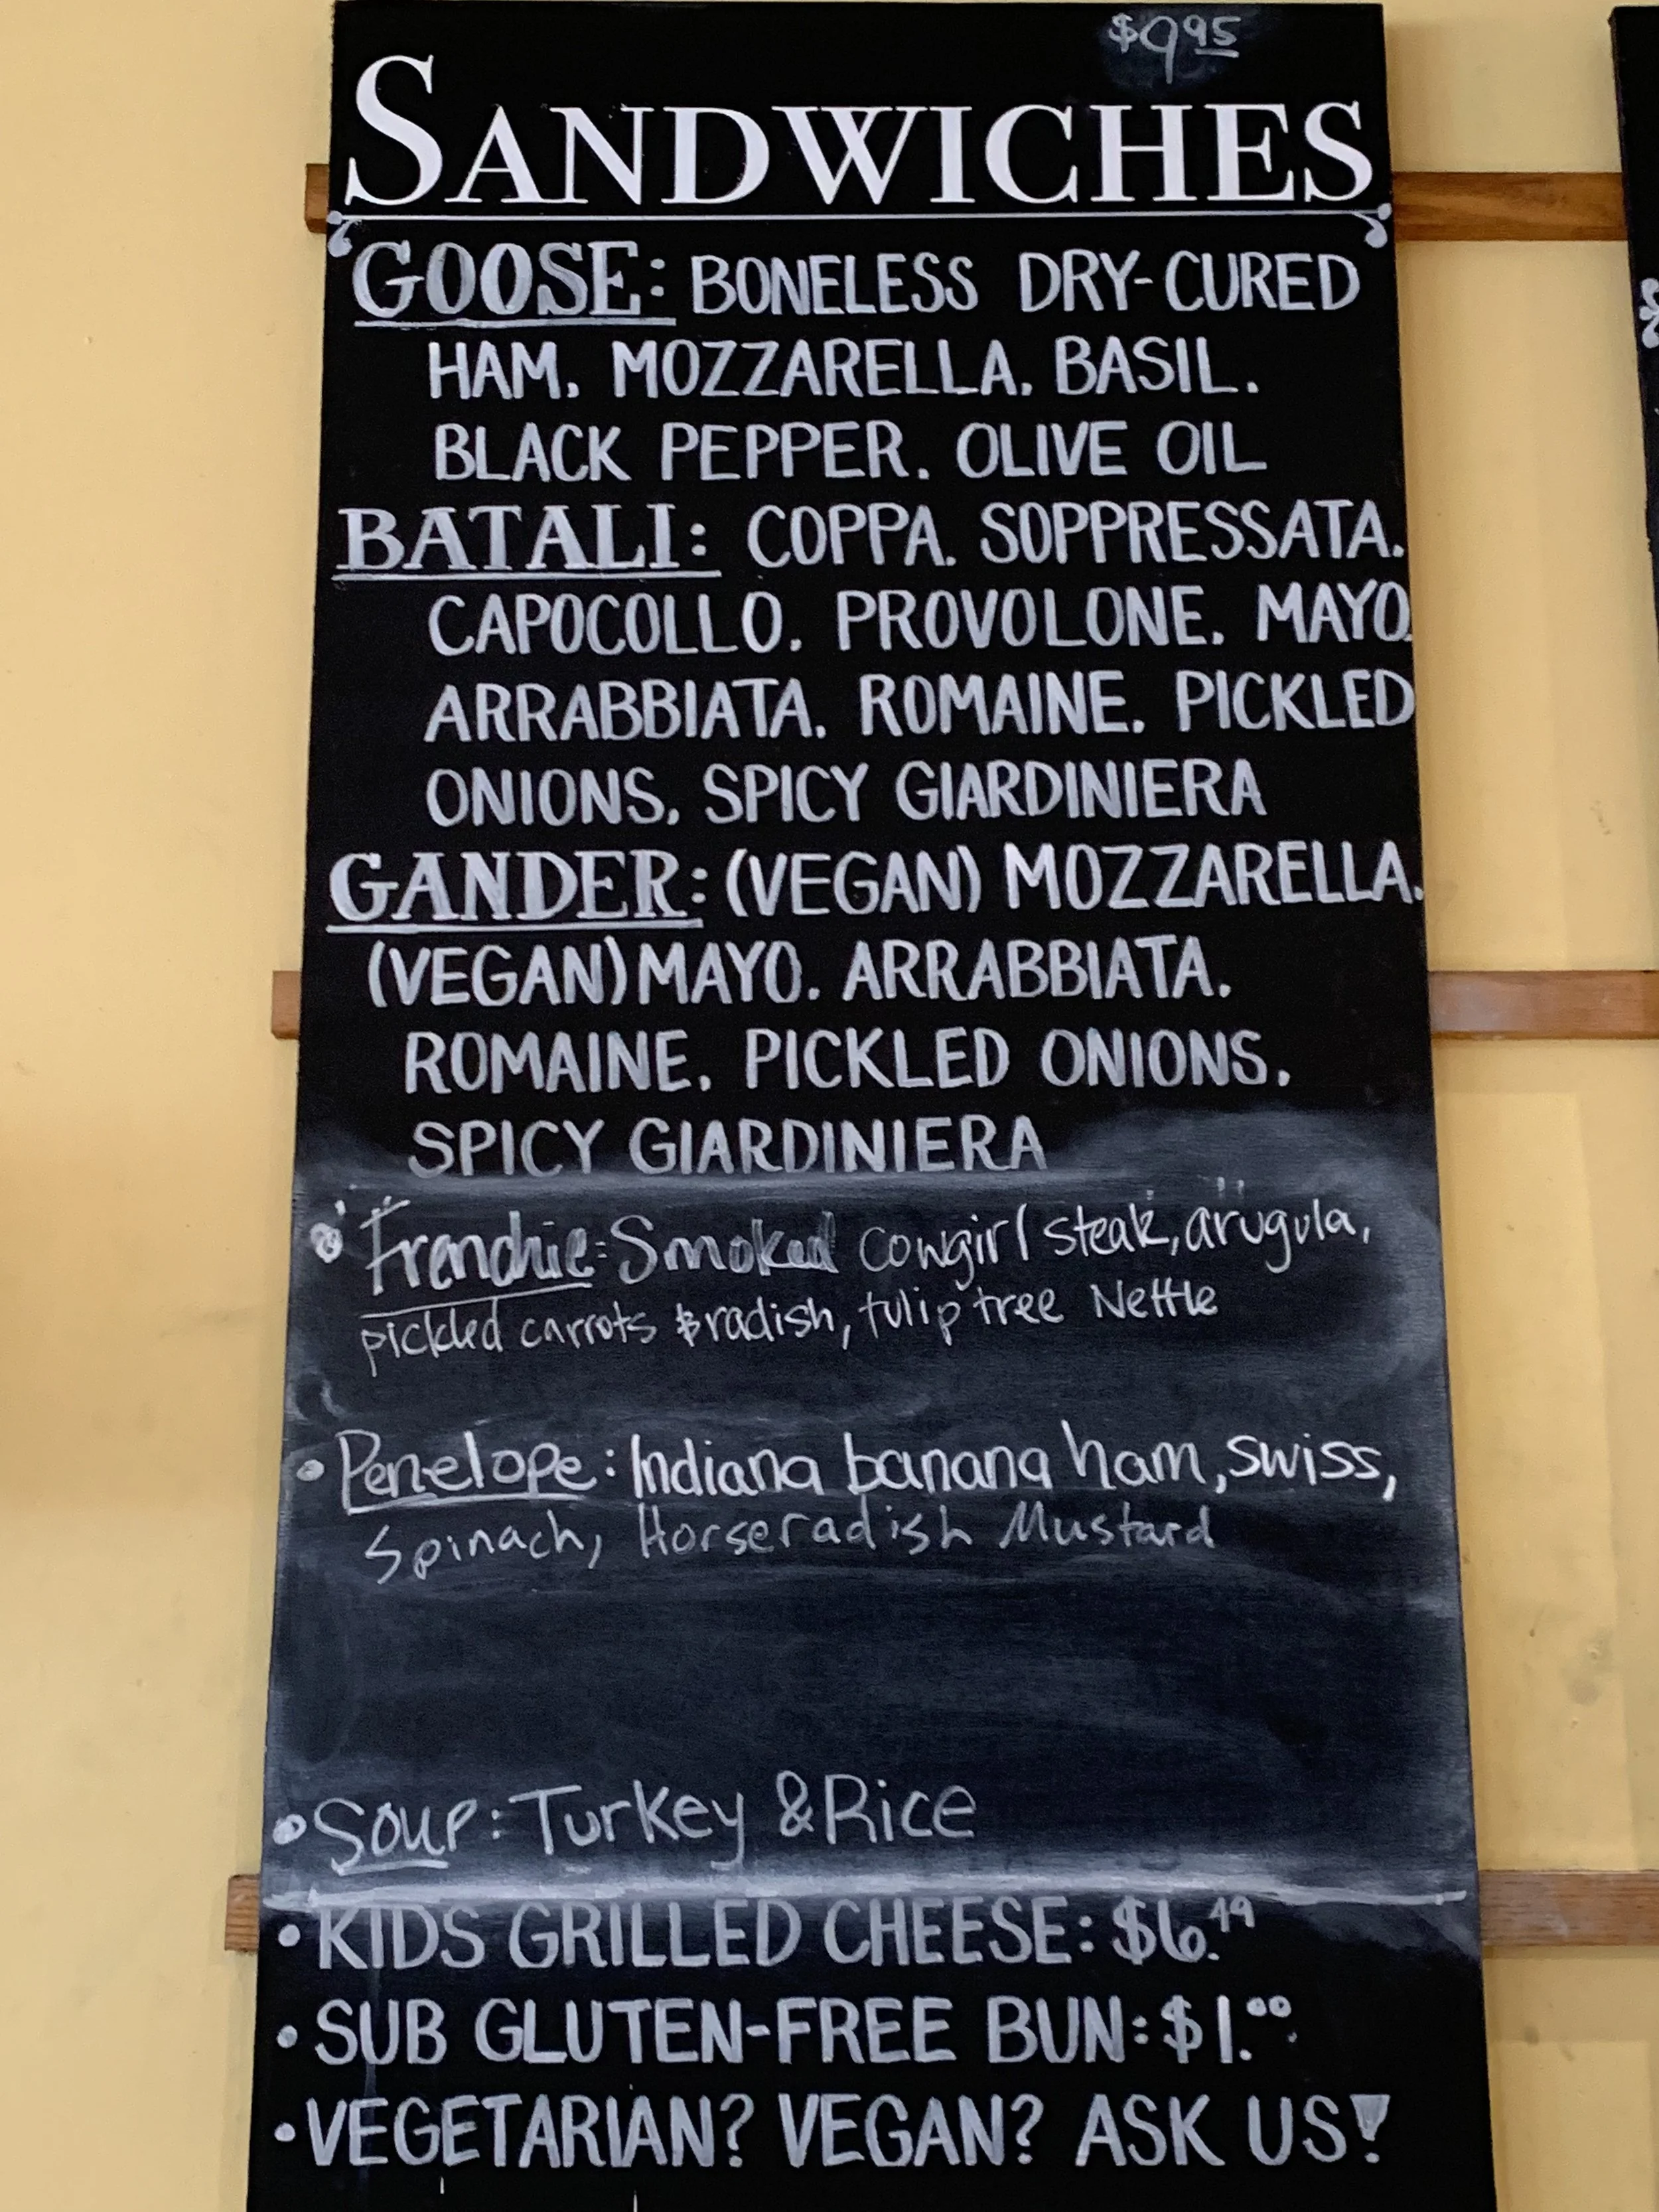 $9.95
SANDWICHES
GOOSE: BONELESS DRY-CURED
HAM. MOZZARELLA. BASIL.
BLACK PEPPER. OLIVE OIL
BATALI: COPPA. SOPPRESSATA.
CAPOCOLLO. PROVOLONE. MAYO.
ARRABBIATA. ROMAINE. PICKLED
ONIONS. SPICY GIARDINIERA
GANDER: (VEGAN) MOZZARELLA.
(VEGAN) MAYO. ARRABBIATA.
ROMAINE. PICKLED ONIONS.
SPICY GIARDINIERA
• Frenchie: Smoked cowgirl steak, arugula,
pickled carrots & radish, tulip tree Nettle
• Penelope: Indiana banana ham, swiss,
Spinach, Horseradish Mustard
• Soup: Turkey & Rice
• KIDS GRILLED CHEESE: $6.49
• SUB GLUTEN-FREE BUN: $1.00
• VEGETARIAN? VEGAN? ASK US!